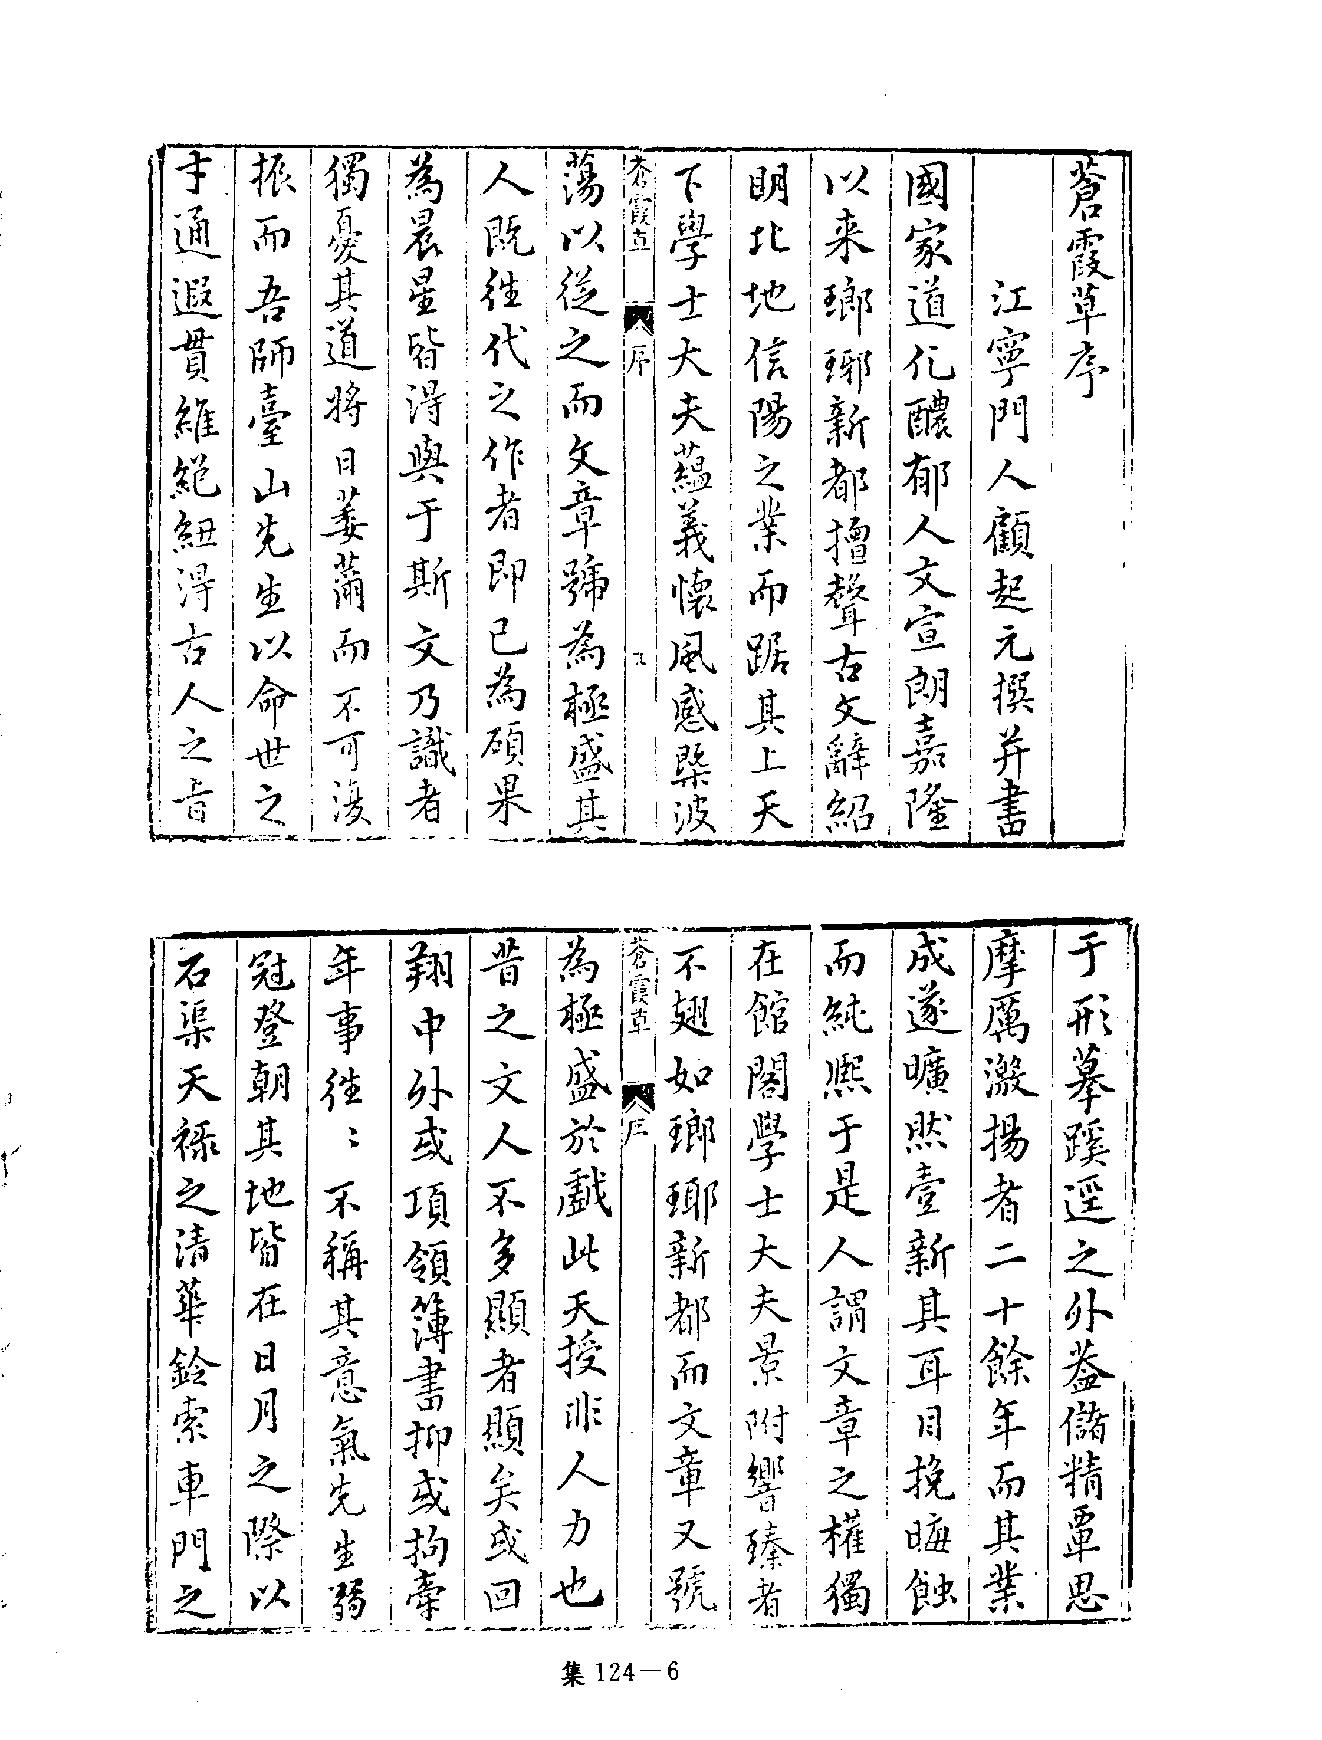 蒼霞草序
江寧門人顧起元撰并書
國家道化醲郁人文宣朗嘉隆
以来瑯琊新都擅聲古文辭紹
明北地信陽之業而踞其上天
下學士大夫蘊義懷風感槩波
蒼霞草
序
蕩以從之而文章號為極盛其
人既徃代之作者即已為碩果
為晨星皆得與于斯文乃識者
獨憂其道將日萎薾而不可復
振而吾師臺山先生以命世之
才通遐貫維絕紐得古人之旨
于形摹蹊逕之外葢儲精覃思
摩厲激揚者二十餘年而其業
成遂曠然壹新其耳目挽晦蝕
而純熙于是人謂文章之權獨
在館閣學士大夫景附響臻者
不翅如瑯琊新都而文章又號
蒼霞草
序
為極盛於戲此天授非人力也
昔之文人不多顯者顯矣或回
翔中外或項領簿書抑或拘牽
年事徃〻不稱其意氣先生弱
冠登朝其地皆在日月之際以
石渠天祿之清華鈴索車門之
集 124—6